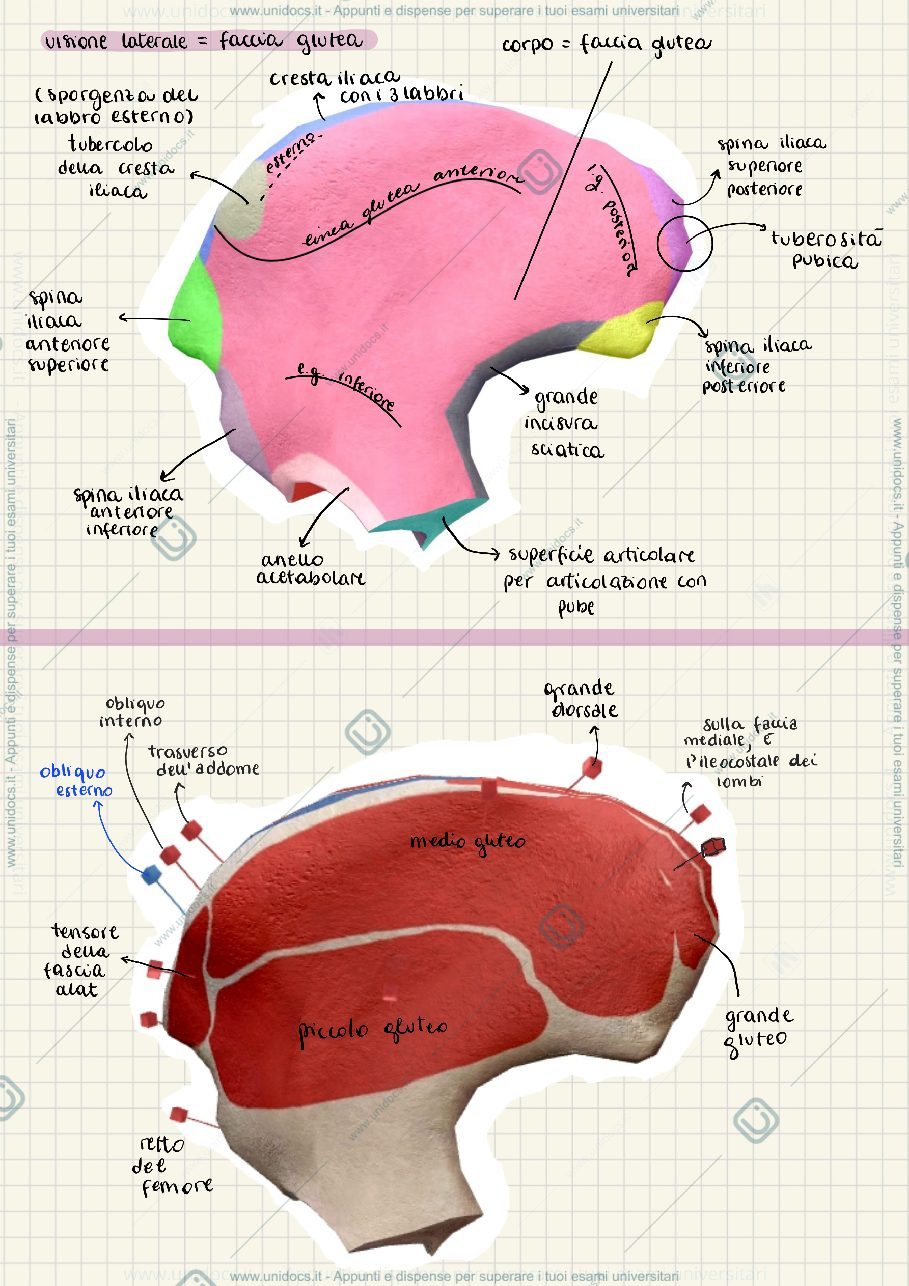 www.unidocs.it - Appunti e dispense per superare i tuoi esami universitari
visione laterale = faccia glutea
corpo = faccia glutea
cresta iliaca
con i 3 labbri
(sporgenza del
labbro esterno)
tubercolo
della cresta
iliaca
esterno
linea glutea anteriore
l.g. posteriore
spina iliaca
superiore
posteriore
tuberosità
pubica
spina
iliaca
anteriore
superiore
spina iliaca
inferiore
posteriore
l.g. inferiore
grande
incisura
sciatica
spina iliaca
anteriore
inferiore
anello
acetabolare
superficie articolare
per articolazione con
pube
www.unidocs.it - Appunti e dispense per superare i tuoi esami universitari
www.unidocs.it - Appunti e dispense per superare i tuoi esami universitari
obliquo
interno
trasverso
dell'addome
obliquo
esterno
grande
dorsale
sulla faccia
mediale, è
l'ileocostale dei
lombi
medio gluteo
tensore
della
fascia
alat
piccolo gluteo
grande
gluteo
retto
del
femore
www.unidocs.it - Appunti e dispense per superare i tuoi esami universitari